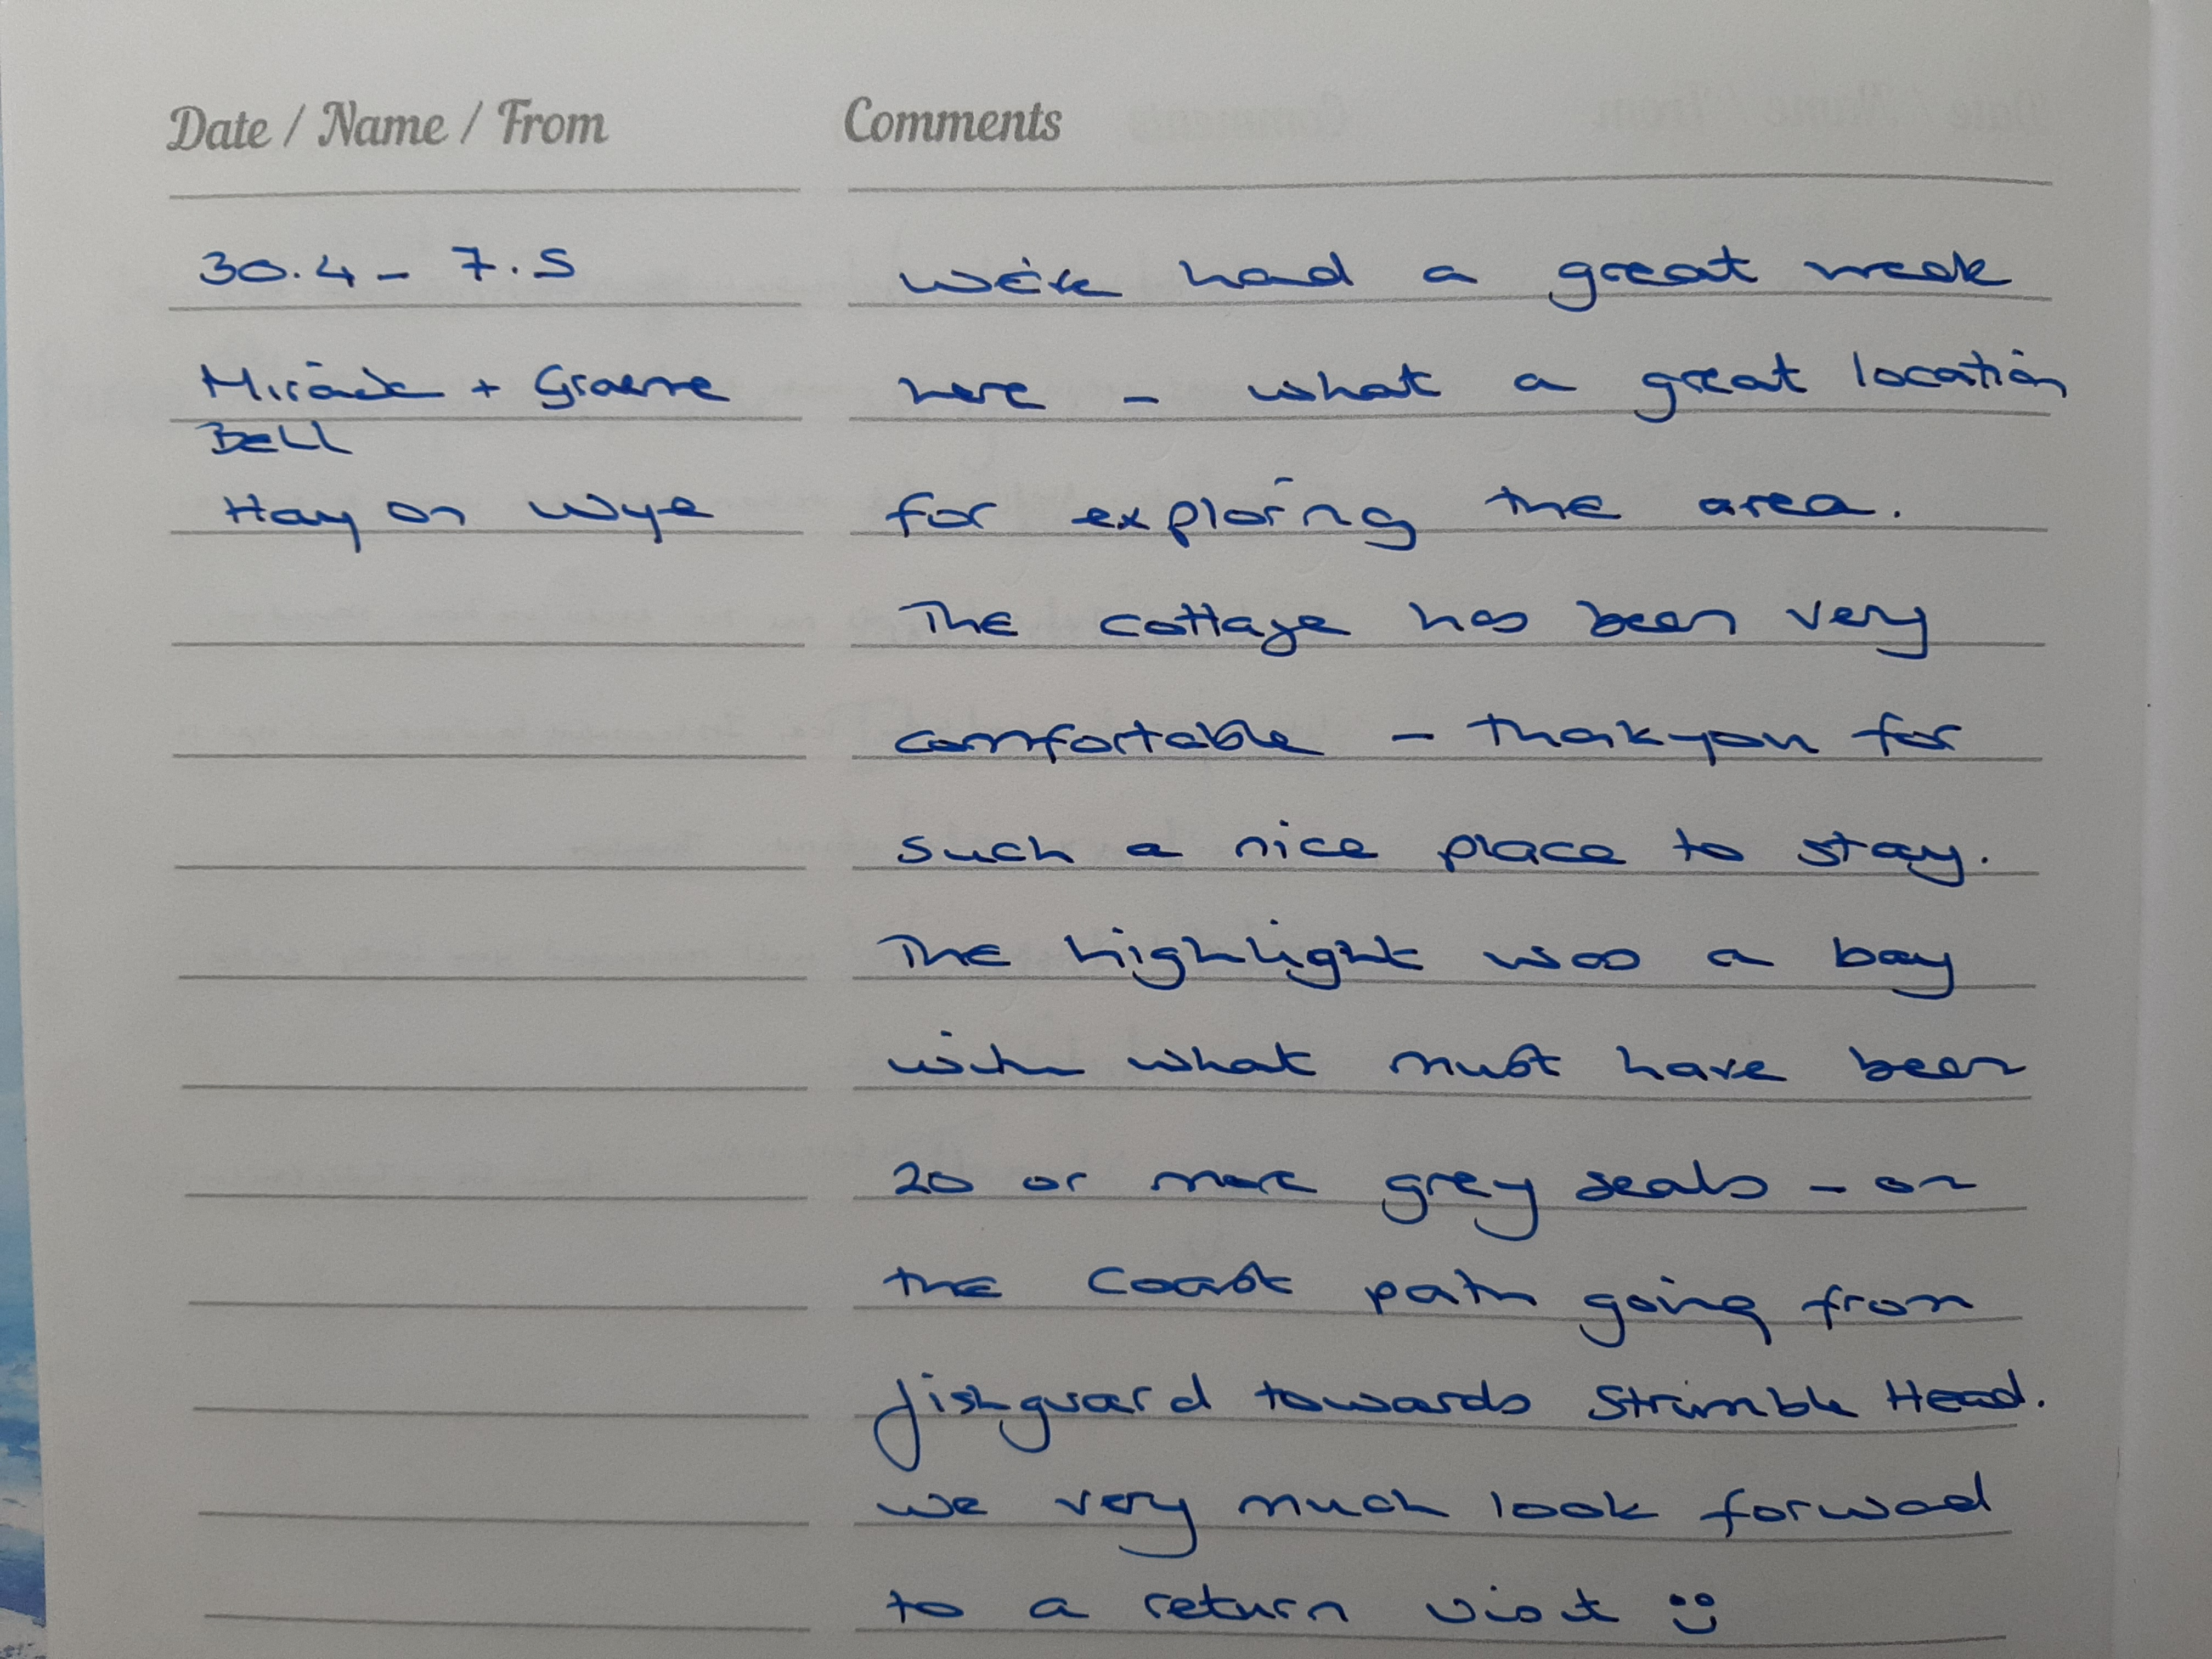 Date / Name / From
Comments
30.4 - 7.5
+ Graeme
Bell
Hay on Wye
We've had a great week
here - what a great location
for exploring the area.
The cottage has been very
comfortable - thankyou for
such a nice place to stay.
The highlight was a bay
with what must have been
20 or more grey seals - on
the Coast path going from
fishguard towards Strumble Head.
we very much look forward
to a return visit